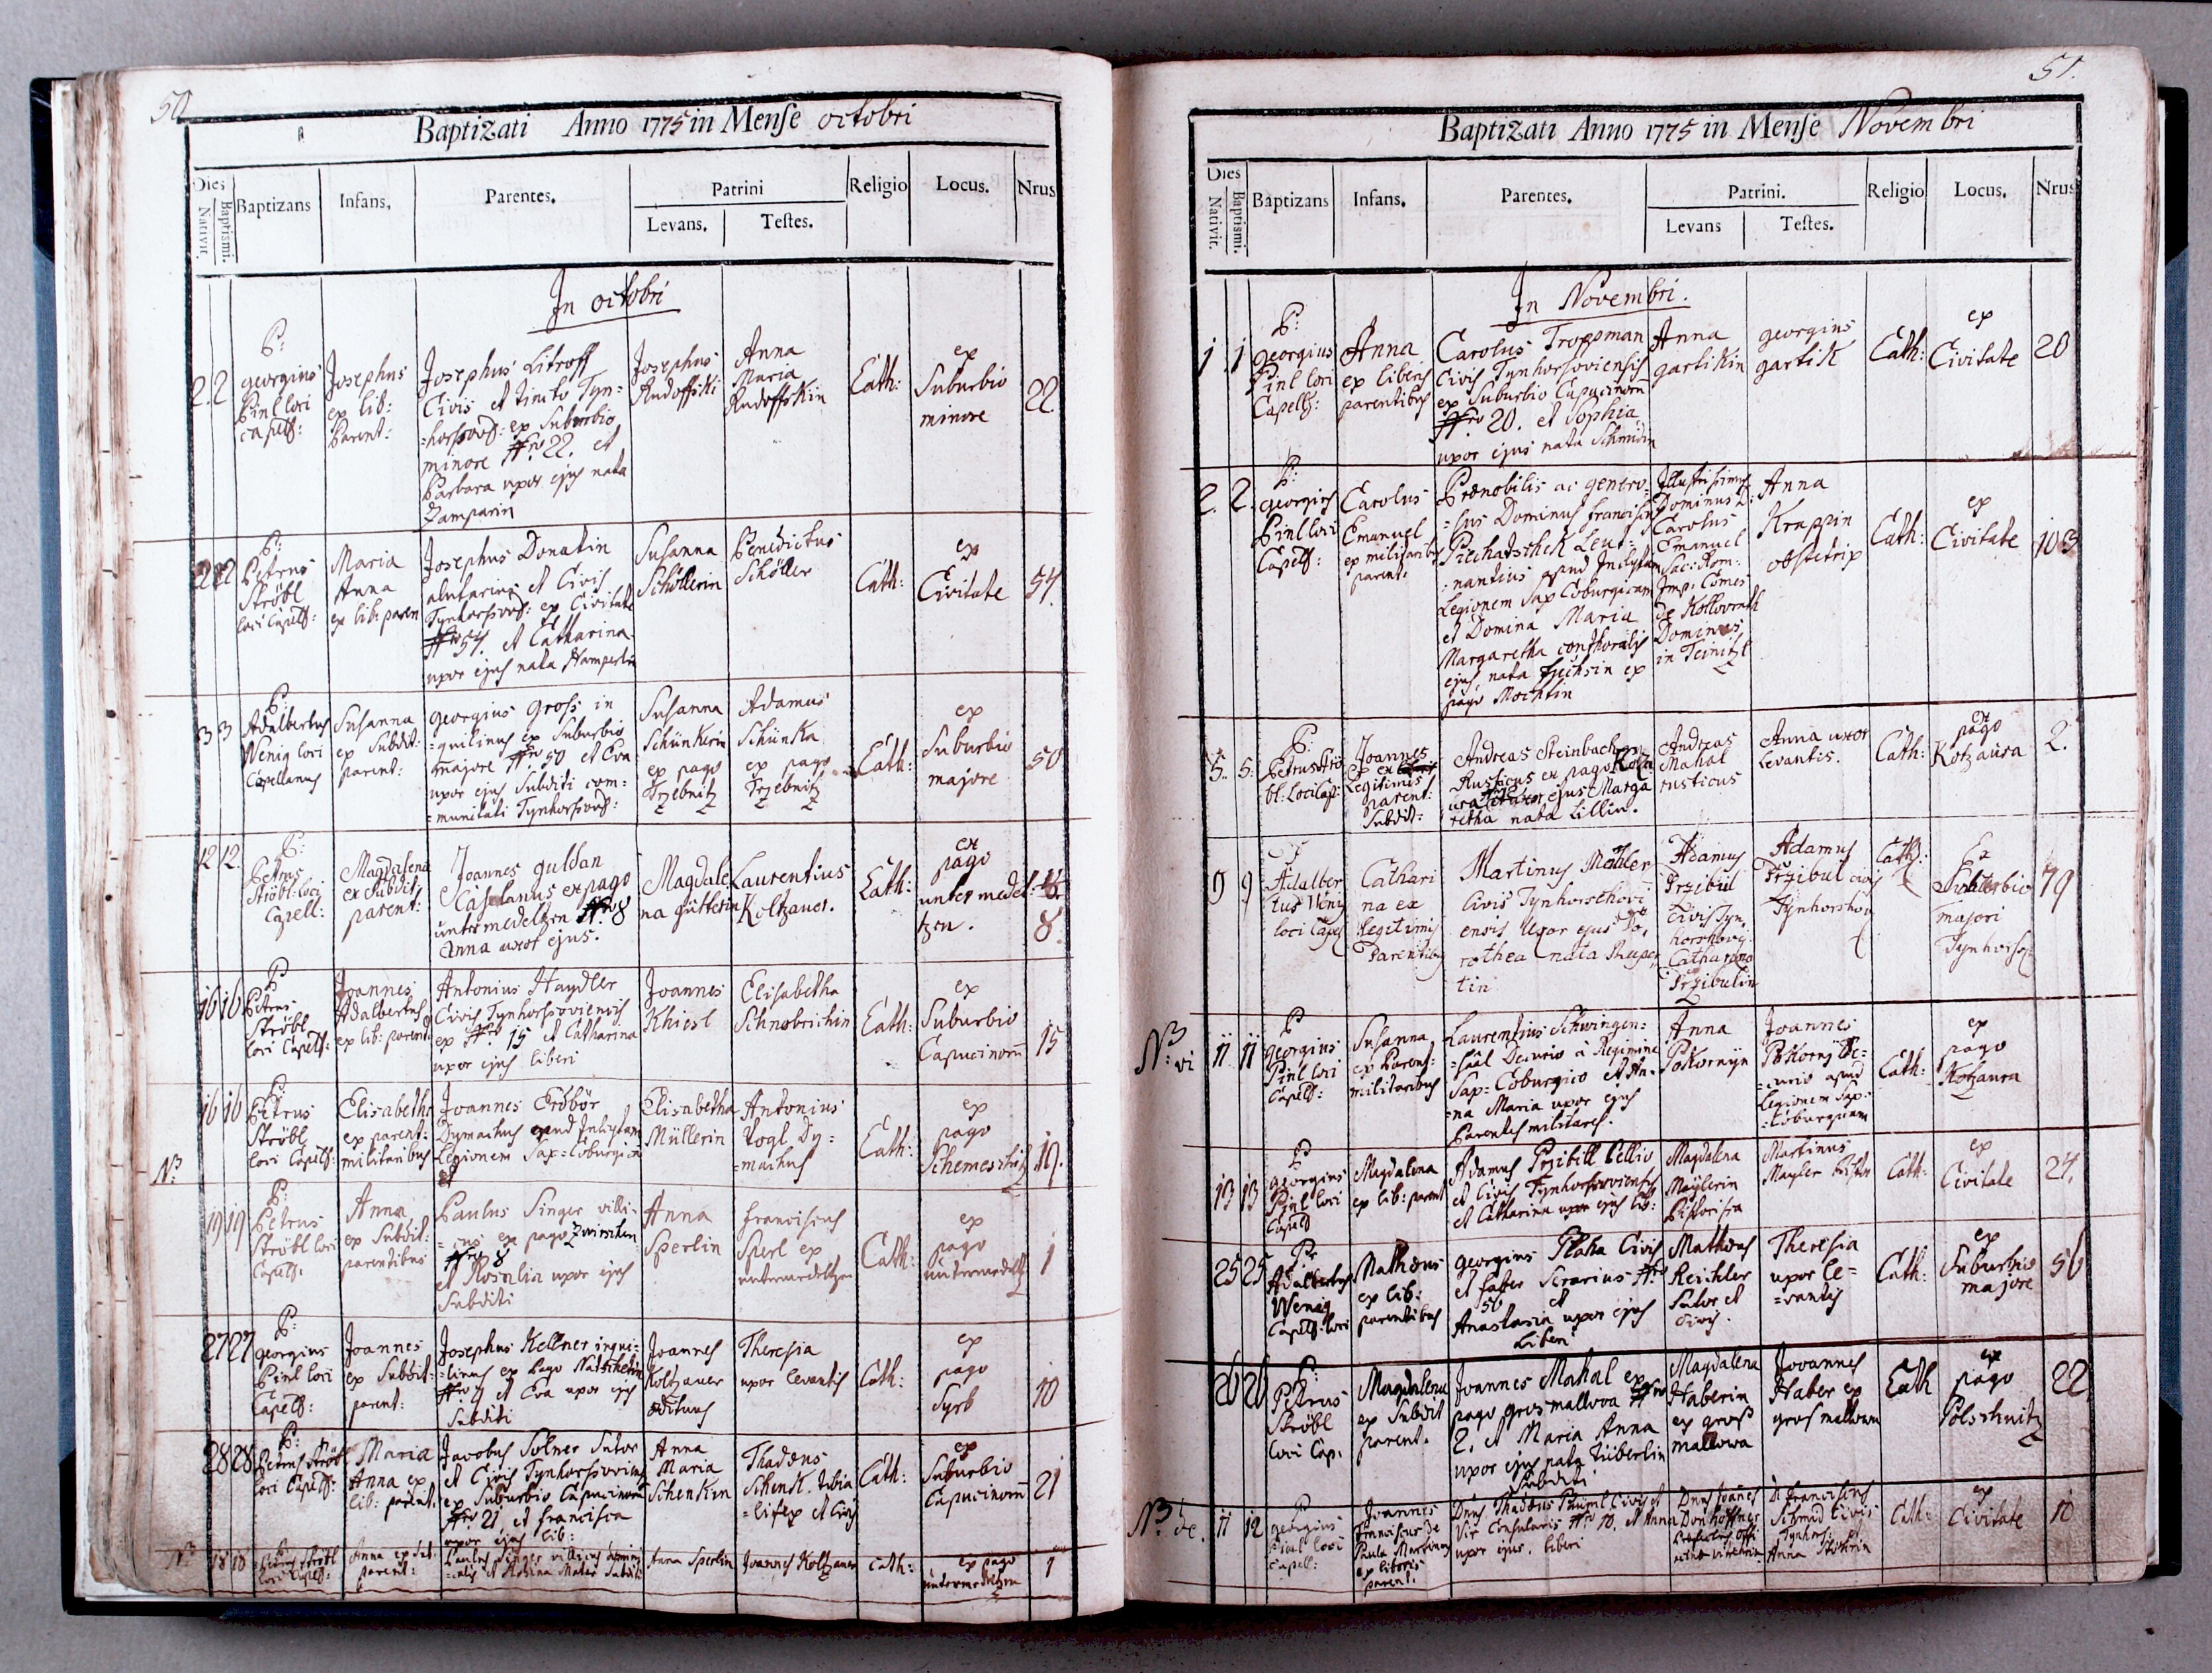 50
Baptizati Anno 1775 in Menſe octobri
Dies
Nativit.
Baptismi.
Baptizans
Infans.
Parentes.
Patrini
Levans.
Teſtes.
Religio
Locus.
Nrus
In octobri
2. 2
P:
georgius
Pinl loci
Capell:
Josephus
ex lib:
Parent:
Josephus Litroff
Civis et tincto Tyn=
=horſsov: ex Suburbio
minore Nro 22. et
Barbara uxor ejus nata
Zamparin
Josephus
Rudoffski
Anna
Maria
Rudoffskin
Cath:
ex
Suburbio
minore
22
22 22
P:
Petrus
Ströbl
loci Capell:
Maria
Anna
ex lib: paren
Josephus Donatin
alutarius et Civis
Tynhorſsov: ex Civitate
Nro 54. et Catharina
uxor ejus nata Hamperlin
Susanna
Schöllerin
Benedictus
Schöller
Cath:
ex
Civitate
54.
3 3
P:
Adalbertus
Wenig loci
Capellanus
Susanna
ex Subdit:
parent:
georgius Groſs in
=quilinus ex Suburbio
majore Nro 50 et Eva
uxor ejus Subditi com=
=munitati Tynhorſsov:
Susanna
Schünkerin
ex pago
Trzebnitz
Adamus
Schünka
ex pago
Trzebnitz
Cath:
ex
Suburbio
majore
50
12 12.
P:
Petrus
Ströbl: loci
Capell:
Magdalena
ex Subdit
parent:
Joannes guldan
ex pago
untermedeltzen Nro 8
Anna uxor ejus.
Magdale
na gütterin
Laurentius
Koltzauer.
Cath:
ex
pago
unter medel=
tzen.
8.
16 16
P
Petrus
Ströbl
loci Capell:
Joannes
Adalbertus
ex lib: parent:
Antonius Haydler
Civis Tynhorſsoviensis
ex Nro 15 et Catharina
uxor ejus liberi
Joannes
Khiesl
Elisabetha
Schnobrichin
Cath:
ex
Suburbio
Capucinorū
15
16 16
P:
Petrus
Ströbl
loci Capell:
Elisabetha
ex parent:
militaribus
Joannes Eröbör
Dymachus apud Inclytam
Legionem Sax=Coburgicā
et
Elisabetha
Müllerin
Antonius
Vogl Dy=
=machus
Cath:
ex
pago
19.
N:
19 19
P:
Petrus
Ströbl loci
Capell:
Anna
ex Subdit:
parentibus
Paulus Singer villi=
=cus ex pago Zwirschen
Nro 8
et Rosalia uxor ejus
Subditi
Anna
Sperlin
franciscus
Sperl ex
untermedeltzen
Cath:
ex
pago
untermedeltz
1
27 27
P:
georgius
Pinl loci
Capell:
Joannes
ex Subdit=
parent:
Josephus Kellner inqui=
=linus ex Pago Natschetin
Nro 9 et Eva uxor ejus
Subditi
Joannes
Koltzauer
ædituus
Theresia
uxor levantis
Cath:
ex
pago
Syrb
10
28 28
P:
Petrus Ströbl
loci Capell:
Maria
Anna ex
lib: parent.
Jacobus Solner Sutor
et Civis Tynhorſsovien
ex Suburbio Capucinorū
Nro 21 et francisca
uxor ejus lib:
Anna
Maria
Schenkin
Thadæus
Schenk. tibia
=lifex et Civis
Cath:
ex
Suburbio
Capucinorū
21
N
18 18
P:
Petrus Ströbl
loci Capell:
Anna ex Sub.
parent:
Paulus Singer villicus
et Rosina Mater Subdit:
Anna Sperlin
Joannes Koltzauer
Cath:
ex pago
untermedeltzen
1
51.
Baptizati Anno 1775 in Menſe Novembri
Dies
Nativit.
Baptismi.
Baptizans
Infans.
Parentes.
Patrini.
Levans
Teſtes.
Religio
Locus.
Nrus
In Novembri.
1 1
P:
georgius
Pinl loci
Capell:
Anna
ex liberis
parentibus
Carolus Troppman
Civis Tynhorſsoviensis
ex Suburbio Capucinorū
Nro. 20. et Sophia
uxor ejus nata Schmidin
Anna
gartikin
georgius
gartik
Cath:
ex
Civitate
20
2. 2.
P:
georgius
Pinl loci
Capell:
Carolus
Emanuel
ex militaribus
parent:
Prænobilis ac genero=
=sus Dominus franciscus
Piechatschek Leut=
=nantius apud Inclytam
Legionem Sax Coburgicam
et Domina Maria
Margaretha conthoralis
ejus, nata fuchsin ex
pago Mochtin
Illustrissimus
Dominus D:
Carolus
Emanuel
Sac: Rom:
Imp: Comes
de Kollovrath
Dominus
in Teinitzl
Anna
Krappin
obstetrix
Cath:
ex
Civitate
103
5. 5.
P:
Petrus Strö
bl: Loci Cap:
Joannes
ex
Legitimis
parent:
Subdit:
Andreas Steinbach
Rusticus ex pago Kotza
ura et uxor ejus Marga
retha nata Lillin.
Andreas
Mahal
rusticus
Anna uxor
Levantis.
Cath:
ex
pago
Kotzaura
2.
9 9
P
Adalber
tus Weny
loci Capel
Cathari
na ex
legitimis
Parentibus
Martinus Mahler
Civis Tynhorschovi
ensis Uxor ejus Do,
rothea nata Ruper
tin
Adamus
Przibil
Civis Tyn
horshovij.
Catharina
Przibilin
Adamus
Przibil civis
Tynhorshov
Cath:
Ex
Suburbio
majori
Tynhorsch
79
N: vi
11 11
P
georgius
Pinl loci
Capell:
Susanna
ex Parent:
militaribus
Laurentius Schwingen=
=ſaäl Decurio à Regimine
Sax=Coburgico et An=
=na Maria uxor ejus
Parentes militares.
Anna
Pokornÿn
Joannes
Pokorny De=
=curio apud
Legionem Sax=
=Coburgicam
Cath:
ex
pago
Kotzaura
13 13
P
georgius
Pinl loci
Capell
Magdalena
ex lib: parent
Adamus Przibill Pellio
et Civis Tynhorſsoviensis
et Catharina uxor ejus lib:
Magdalena
Maÿlerin
Pistorissa
Martinus
Mayler Pistor
Cath:
ex
Civitate
24.
25 25
Pr
Adalbertus
Wenig
Capell: loci
Mathæus
ex lib:
parentibus
georgius Plaka Civis
et faber Serarius Nro
56 et
Anastasia uxor ejus
Liberi
Mathæus
Reichler
Sutor et
Civis.
Theresia
uxor le=
=vantis
Cath:
ex
Suburbio
majore
56
26 26
P:
Petrus
Ströbl
loci Cap.
Magdalena
ex Subdit
parent.
Joannes Mahal ex
pago gros mallova Nro
2. et Maria Anna
uxor ejus nata Tüberlin
Subditi
Magdalena
Haberin
ex groß
mallowa
Joannes
Haber ex
gros mallowa
Cath
ex
pago
Polschnitz
22
N: de.
11 12
P
georgius
Pinl loci
Capell:
Joannes
Franciscus de
Paula Martinus
ex liberis
parent.
Dnus Thadæus Päuml Civis et
Vir Consularis Nro 10. et Anna
uxor ejus. liberi
Dnus Joannes
Donhöffner
D: franciscus
Schmid Civis
Tynhors:
Cath:
ex
Civitate
10